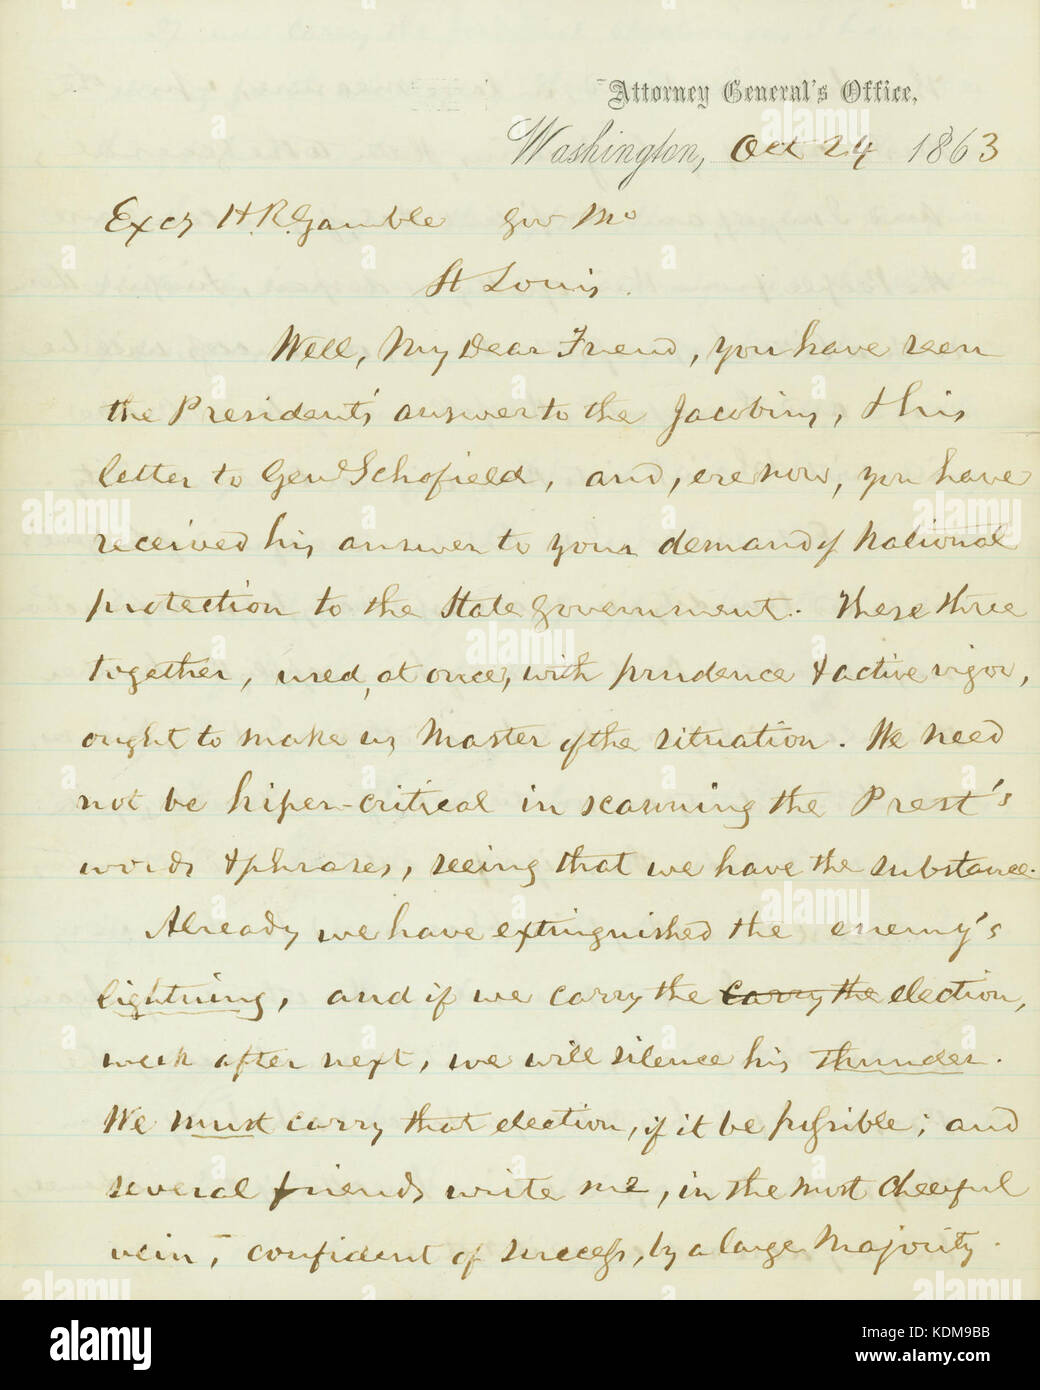 Attorney General's Office,
Washington, Oct 24 1863
Excy H. R. Gamble Gov Mo
St Louis.
Well, My Dear Friend, you have seen
the President's answer to the Jacobins, & his
letter to Genl Schofield, and, ere now, you have
received his answer to your demand of National
protection to the State Government. These three
together, used, at once, with prudence & active vigor,
ought to make us Master of the situation. We need
not be hiper-critical in scanning the Prest's
words & phrases, seeing that we have the substance.
Already we have extinguished the enemy's
lightning, and if we carry the carry the election,
week after next, we will silence his thunder.
We must carry that election, if it be possible; and
several friends write me, in the most cheerful
vein, confident of success, by a large Majority.
alamy
Image ID: KDM9BB
www.alamy.com